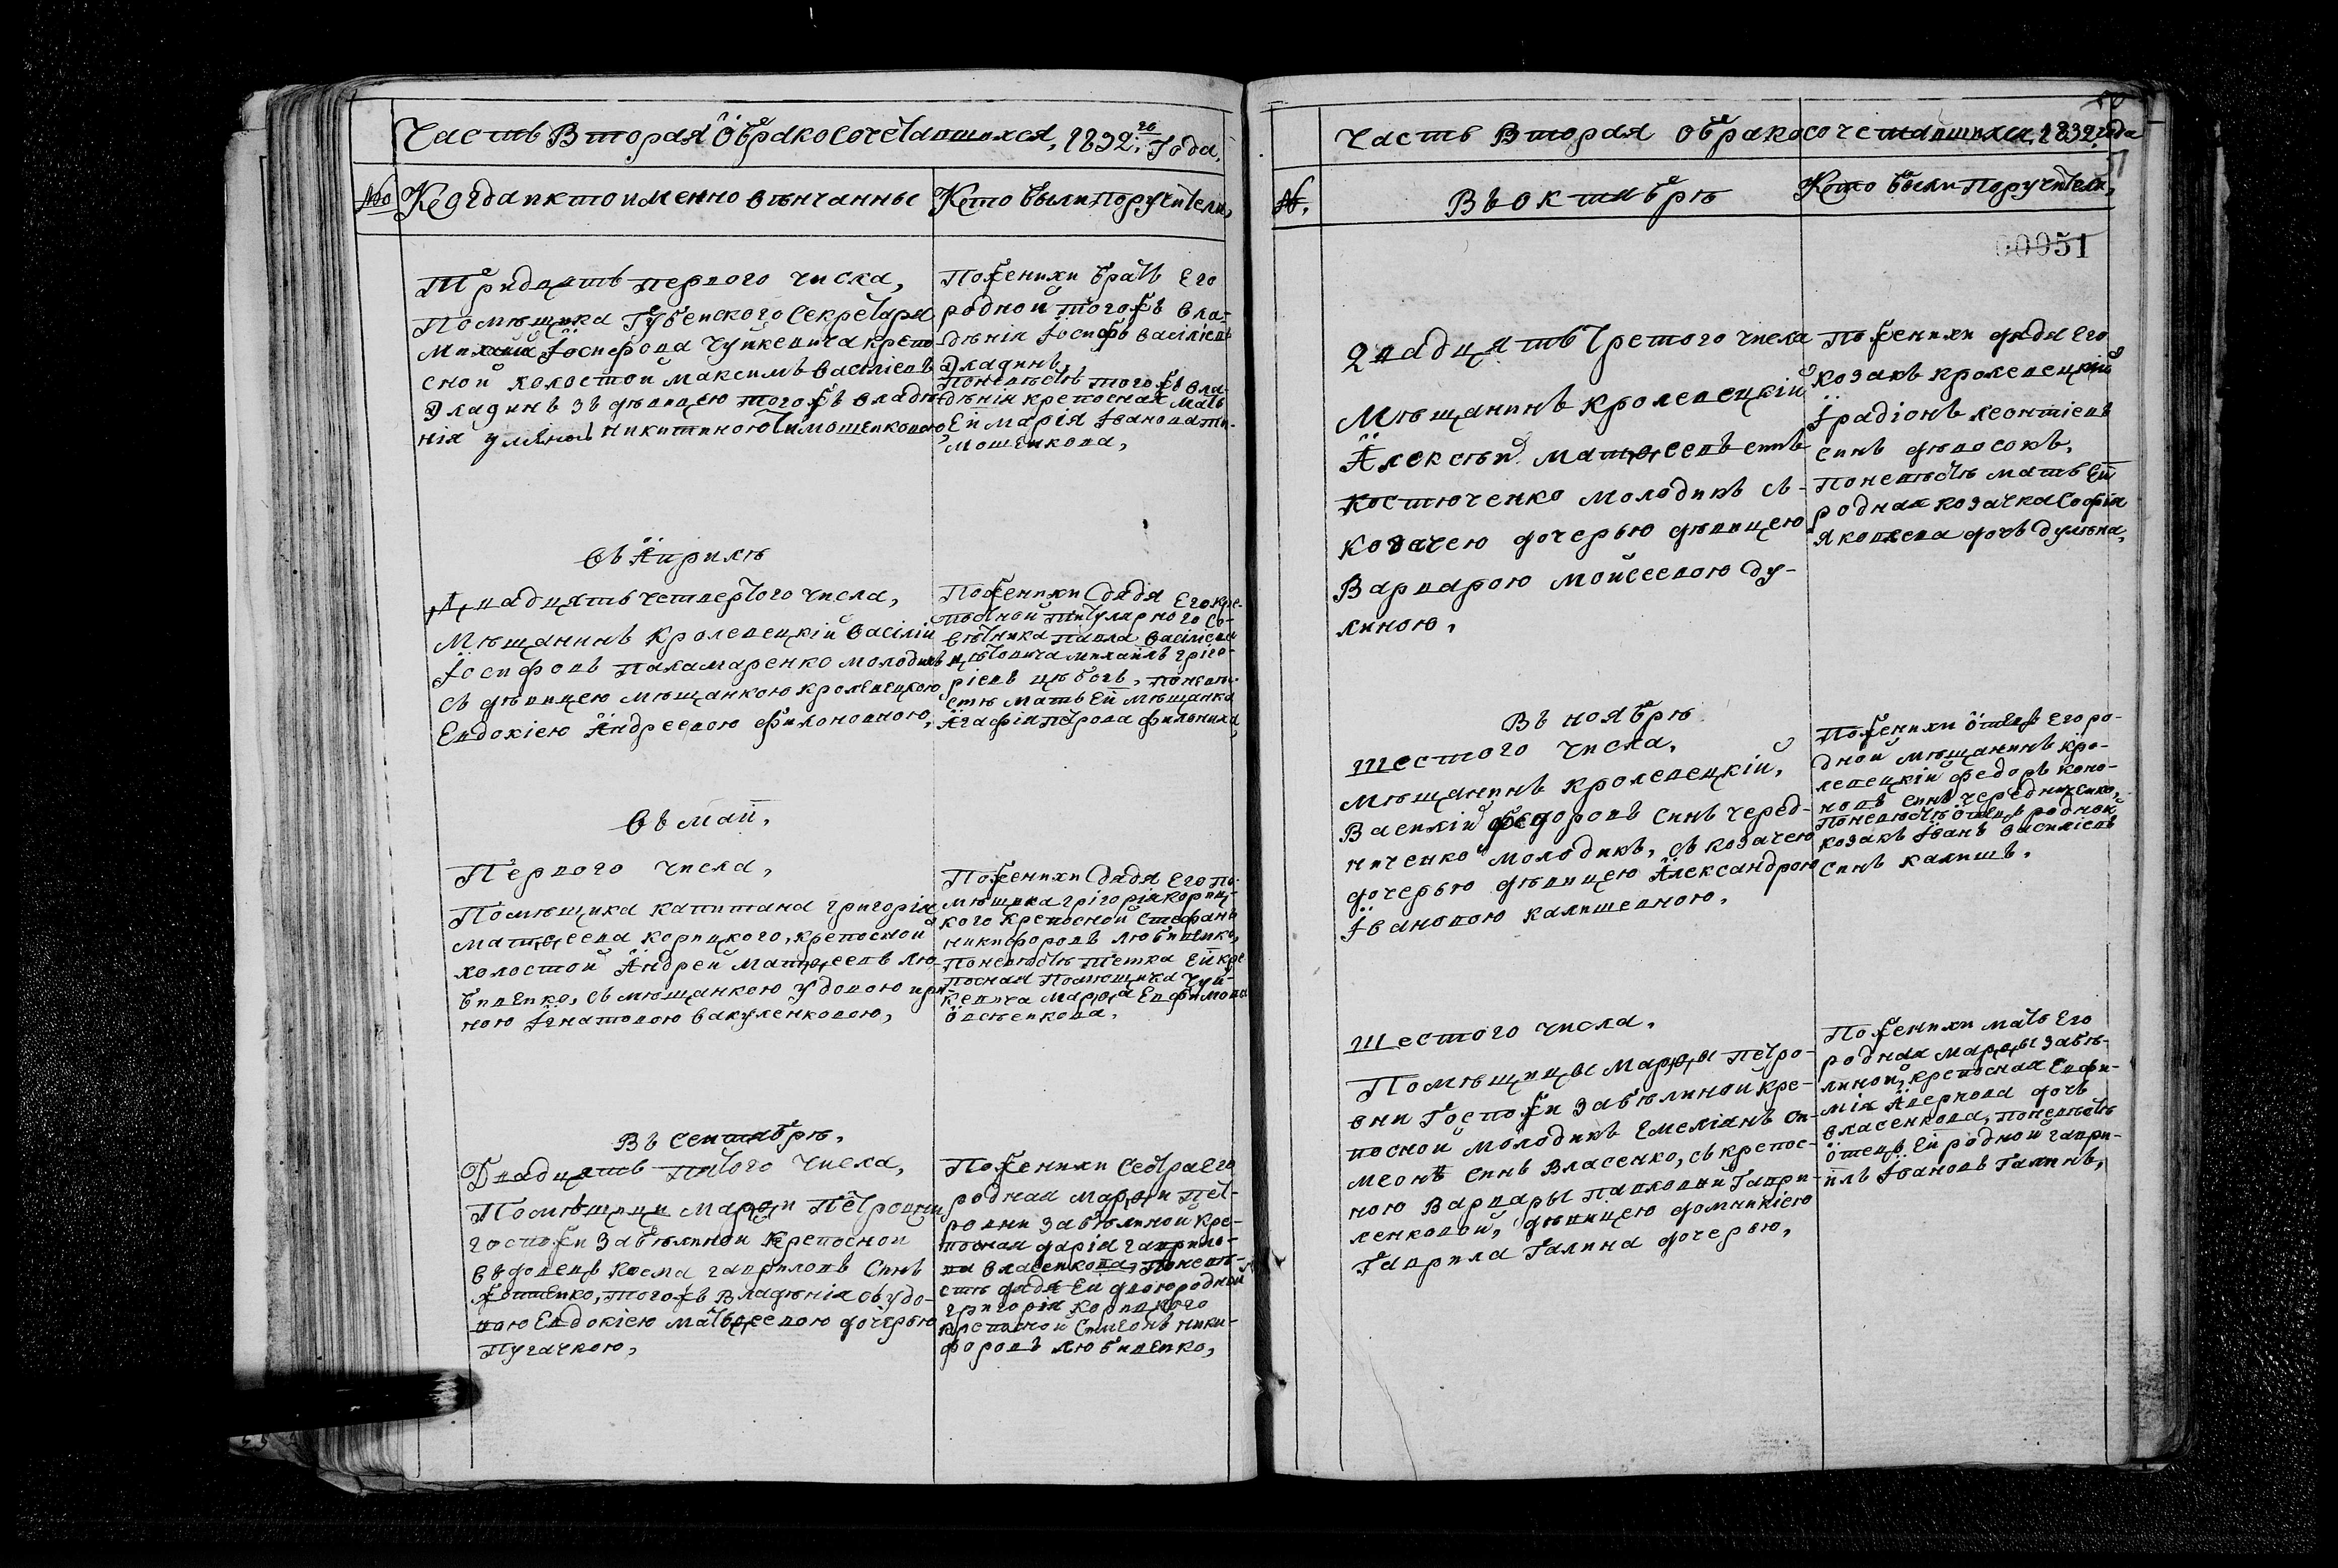 Часть Вторая О бракосочетавшихся, 1832.го Года,
№ Когда и кто именно венчанны
Кто были Поручители,
Тридцать первого числа,
Помѣщика Губенского Секретаря
Михаила Іосифова Чуйкевича крепо
сной холостой Максимъ Васіліевъ
зъ дѣвицею тогожъ владѣ
нія Николаевою Тимошенковою
Поженихи братъ Его
родной тогожъ вла-
дѣнія Іосифъ Васіліевъ
Поневѣстѣ тогожъ вла-
дѣнія крепосная мать
Ей Марія Іванова Ти-
мошенкова,
Въ Априлѣ
Двадцять четвертого числа,
Мѣщанинъ Кролевецкій Васілій
Іосифовъ Паламаренко молодикъ
съ дѣвицею мѣщанкою кролевецкою
Евдокіею Андреевою Филоновною,
Поженихи дядя Его кре-
посной титулярного Со-
вѣтника Павла Васіліева
Михаилъ Гріго-
ріевъ, поневѣ-
стѣ мать Ей мѣщанка
Агафія Петрова
Въ Маіи,
Первого числа,
Помѣщика капитана Григорія
Матѳеева Корицкого, крепосной
холостой Андрей Матѳеевъ Лю-
биценко, съ мѣщанкою удовою Ири-
ною Ігнатовою Вакуленковою,
Поженихи дядя Его по-
мѣщика Грігорія Кориц-
кого крепосной Стефанъ
Никифоровъ Любиценко,
Поневѣстѣ тетка Ей кре
посная помѣщика Чуй-
кевича Марѳа Евфимова
Овсѣенкова,
Въ Сентябрѣ,
Двадцять пятого числа,
Помѣщици Марѳи Петровни
госпожи Забѣлиной крепосной
вдовецъ Косма Гавриловъ Синъ
тогожъ владѣнія съ удо-
вою Евдокіею Матѳеевою дочерью
Пугачкою,
Поженихи Сестра его
родная Марѳи Пет-
ровни Забѣлиной кре-
посная Дарія Гаврило-
ва Власенкова, Поневѣ-
стѣ дядя Ей двоюродной
Григорія Корицкого
крепосной Симеонъ Ники-
форовъ Любиценко,
Часть Вторая О бракосочетавшихся, 1832, года
51
№.
Въ октябрѣ
Кто были Поручители,
00051
Двадцять третого числа
Мѣщанинъ кролевецкій
Алексѣй Матѳеевъ синъ
Костюченко молодикъ съ
козачею дочерью дѣвицею
Варварою Мойсеевою Ду-
линою,
Поженихи дядя Его
козакъ кролевецкій
Ірадіонъ Леонтіевъ
синъ
Поневѣстѣ мать Ей
родная козачка Софія
Яковлева дочь
Въ ноябрѣ
Шестого числа,
Мѣщанинъ кролевецкій,
Василій Федоровъ синъ Черед-
ниченко молодикъ, съ козачею
дочерью дѣвицею Александрою
Івановою Калишевною,
Поженихи Отецъ Его ро-
дной мѣщанинъ кро-
левецкій Федоръ Коно-
новъ синъ Чередниченко,
Поневѣстѣ Отецъ родной
козакъ Іванъ Василіевъ
синъ Калишъ,
Шестого числа,
Помѣщицы Марѳы Петро-
вни Госпожи Забѣлиной кре-
посной молодикъ Емеліанъ Си-
меонъ Синъ Власенко, съ крепос-
ною Варвары Павловой Гаври-
ленковой, дѣвицею Домникіею
Гаврила Галина дочерью,
Поженихи мать Его
родная Марѳы Забѣ-
линой, крепосная Евфи-
мія Аверкова дочь
Власенкова, поневѣстѣ
отецъ Ей родной Гаври-
илъ Івановъ Галинъ,